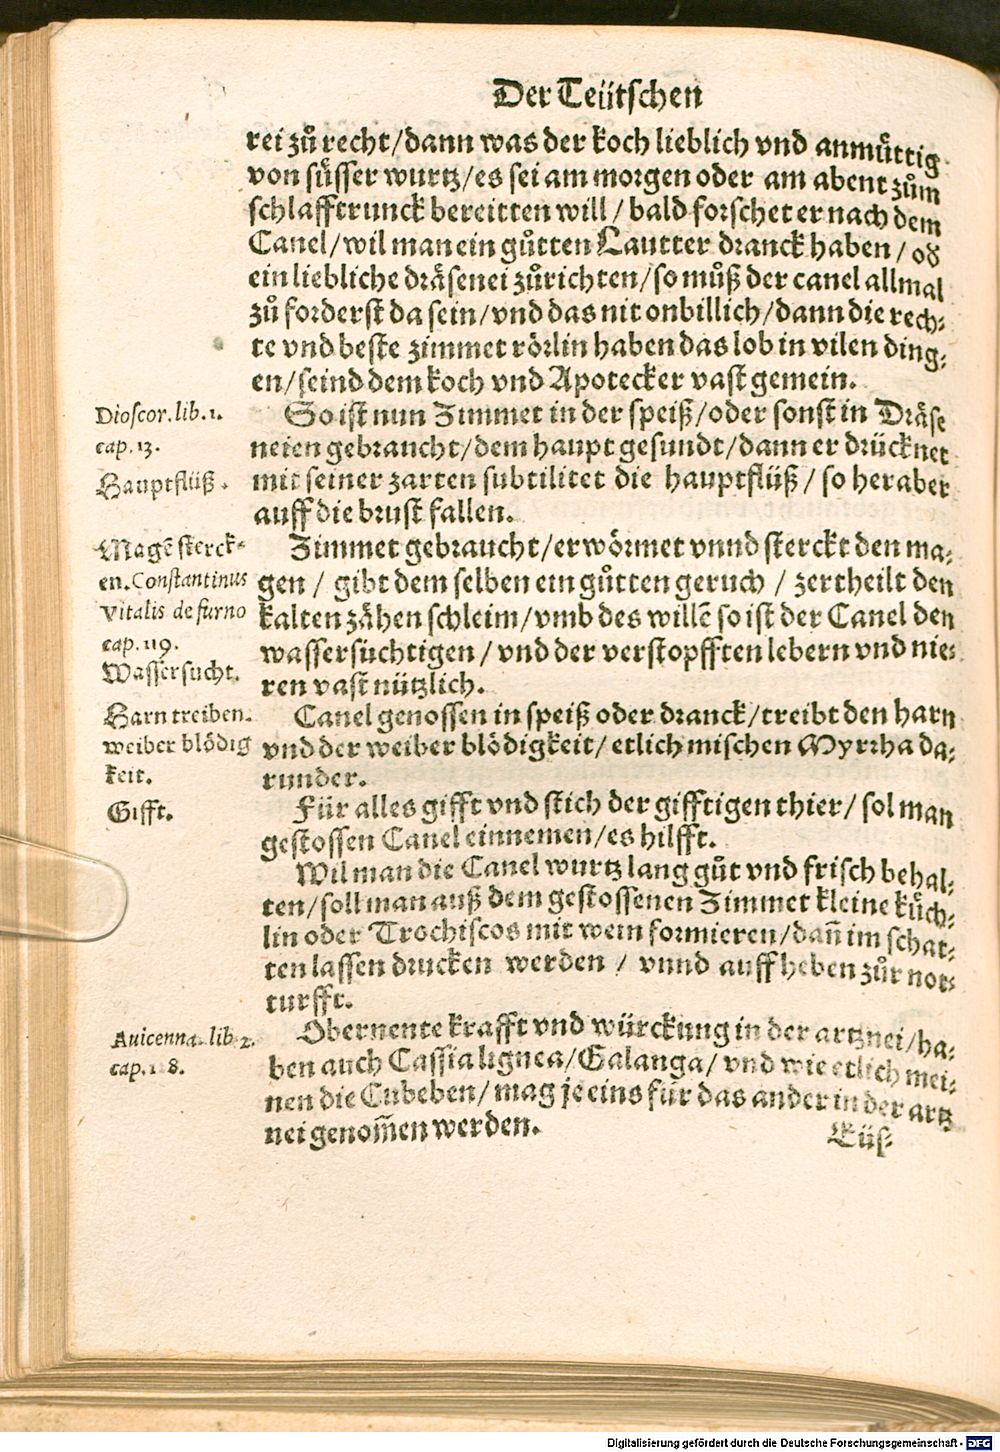 Der Teütschen
rei zů recht/dann was der koch lieblich vnd anmůttig
von süsser wurtz/es sei am morgen oder am abent zům
schlafftrunck bereitten will / bald forschet er nach dem
Canel/wil man ein gůtten Lautter dranck haben / od
ein liebliche dräsenei zůrichten/so můß der canel allmal
zů forderst da sein/vnd das nit onbillich/dann die rech-
te vnd beste zimmet rörlin haben das lob in vilen ding-
en/seind dem koch vnd Apotecker vast gemein.
Dioscor. lib. 1.
cap. 13.
Hauptflüß.
So ist nun Zimmet in der speiß/oder sonst in Dräse
neien gebraucht/dem haupt gesundt/dann er drücknet
mit seiner zarten subtilitet die hauptflüß / so heraber
auff die brust fallen.
Magē sterck-
en. Constantinus
Vitalis de furno
cap. 119.
Wassersucht.
Zimmet gebraucht/erwörmet vnnd sterckt den ma-
gen / gibt dem selben ein gůtten geruch / zertheilt den
kalten zähen schleim/vmb des willē so ist der Canel den
wassersüchtigen / vnd der verstopfften lebern vnd nie-
ren vast nützlich.
Harn treiben.
weiber blödig
keit.
Canel genossen in speiß oder dranck/treibt den harn
vnd der weiber blödigkeit/etlich mischen Myrrha da-
runder.
Gifft.
Für alles gifft vnd stich der gifftigen thier/ sol man
gestossen Canel einnemen/es hilfft.
Wil man die Canel wurtz lang gůt vnd frisch behal-
ten/soll man auß dem gestossenen Zimmet kleine küch-
lin oder Trochiscos mit wein formieren/dañ im schat-
ten lassen drucken werden / vnnd auff heben zůr not-
turfft.
Auicenna. lib 2.
cap.
Obernente krafft vnd würckung in der artznei/ha-
ben auch Cassia lignea/Galanga/ vnd wie etlich mei-
nen die Cubeben/ mag je eins für das ander in der artz
nei genom̃en werden.
Süß-
Digitalisierung gefördert durch die Deutsche Forschungsgemeinschaft - DFG